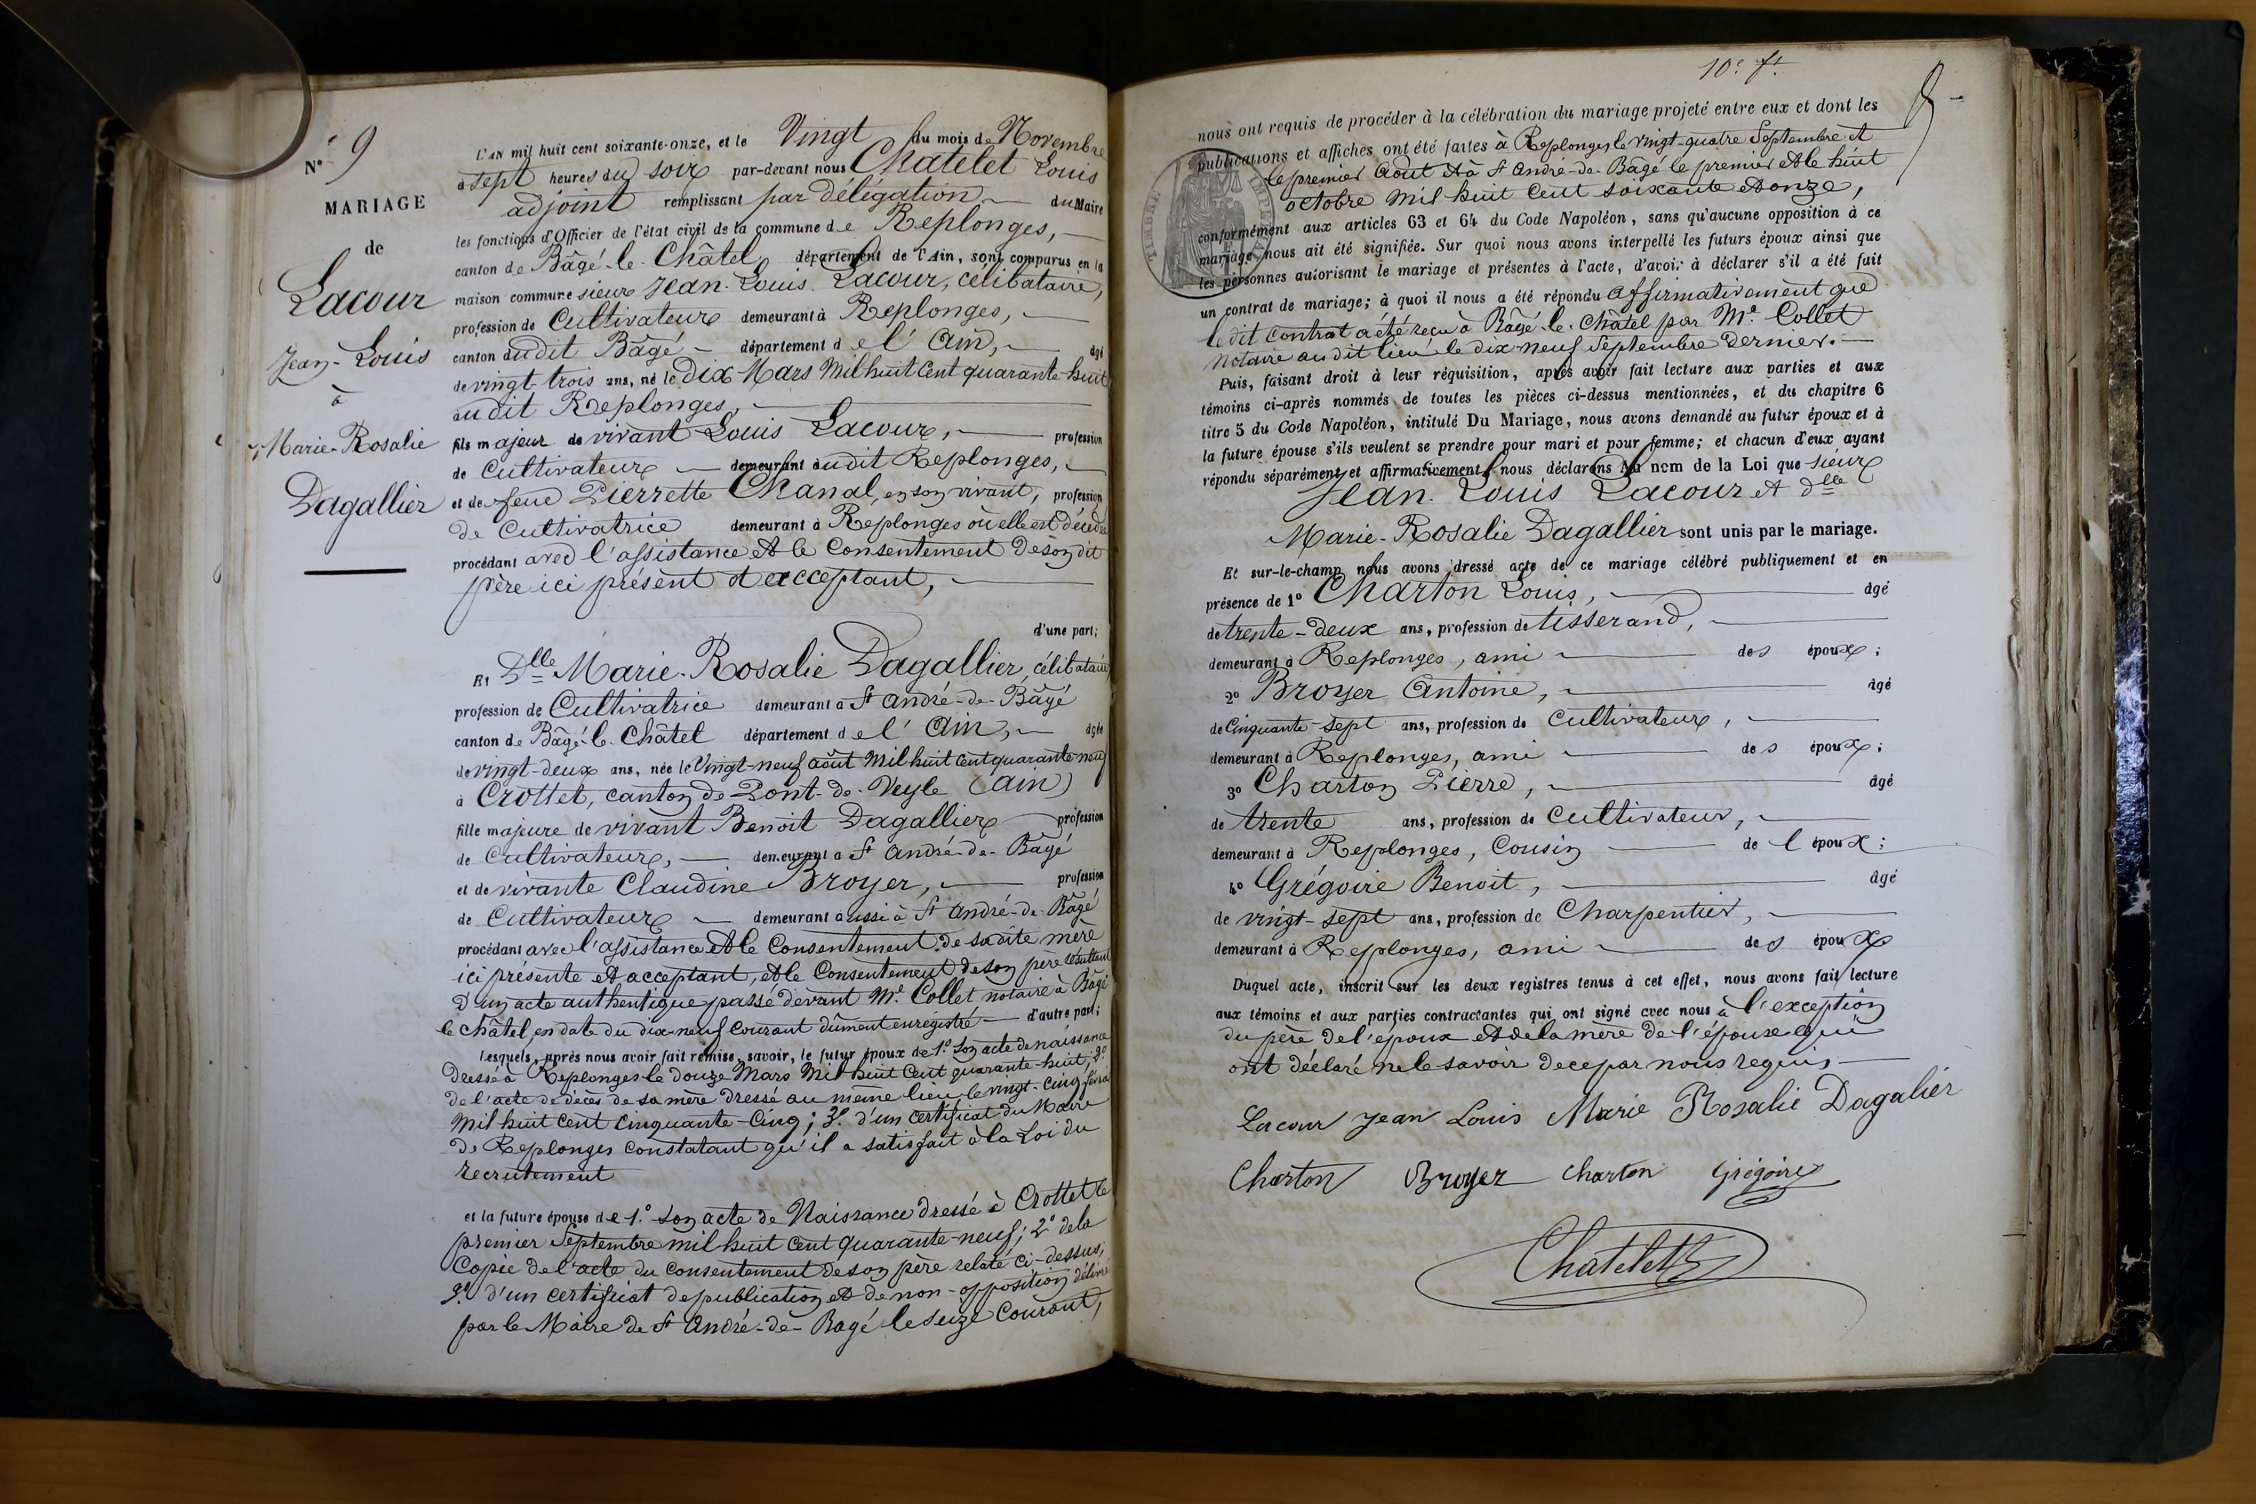 N° 9
MARIAGE
de
Lacour
Jean-Louis
à
Marie-Rosalie
Dagallier
L'AN mil huit cent soixante-onze, et le Vingt du mois de Novembre
à sept heures du soir par-devant nous Chatelet Louis
adjoint remplissant par délégation du Maire
les fonctions d'Officier de l'état civil de la commune de Replonges,
canton de Bâgé-le-Châtel département de l'Ain, sont comparus en la
maison commune sieur Jean-Louis Lacour, célibataire,
profession de Cultivateur demeurant à Replonges,
canton dudit Bâgé département de l'Ain, âgé
de vingt-trois ans, né le Dix Mars Mil huit Cent quarante-huit
audit Replonges
fils majeur de vivant Louis Lacour, profession
de Cultivateur demeurant audit Replonges,
et de feue Pierrette Chanal, en son vivant, profession
de Cultivatrice demeurant à Replonges où elle est décédée
procédant avec l'assistance et le Consentement de son dit
père ici présent et acceptant,
d'une part;
Et Dlle Marie-Rosalie Dagallier, célibataire
profession de Cultivatrice demeurant à St André-de-Bâgé
canton de Bâgé-le-Châtel département de l'Ain, âgée
de vingt-deux ans, née le Vingt-neuf août Mil huit cent quarante-neuf
à Crottet, canton de Pont-de-Veyle (Ain)
fille majeure de vivant Benoit Dagallier profession
de Cultivateur, demeurant à St André-de-Bâgé
et de vivante Claudine Broyer, profession
de Cultivateur demeurant aussi à St André-de-Bâgé
procédant avec l'assistance et le Consentement de sa dite mère
ici présente et acceptant, et le Consentement de son père résultant
d'un acte authentique passé devant Me Collet notaire à Bâgé
le Châtel, en date du dix-neuf courant dûment enregistré d'autre part;
Lesquels, après nous avoir fait remise, savoir, le futur époux de 1.° son acte de naissance
dressé à Replonges le douze Mars Mil huit Cent quarante-huit; 2.°
de l'acte de décès de sa mère dressé au même lieu le vingt-cinq février
Mil huit Cent Cinquante-Cinq; 3.° d'un certificat du Maire
de Replonges constatant qu'il a satisfait à la Loi du
recrutement
et la future épouse de 1.° son acte de Naissance dressé à Crottet le
premier Septembre mil huit cent quarante-neuf; 2° de la
Copie de l'acte du consentement de son père relaté ci-dessus;
3.° d'un certificat de publication et de non-opposition délivré
par le Maire de St André-de-Bagé le seize Courant,
10.e f.t
nous ont requis de procéder à la célébration du mariage projeté entre eux et dont les
publications et affiches ont été faites à Replonges, le vingt-quatre Septembre et
le premier Août et à St André-de-Bâgé le premier et le huit
octobre mil huit Cent soixante et onze,
conformément aux articles 63 et 64 du Code Napoléon, sans qu'aucune opposition à ce
mariage nous ait été signifiée. Sur quoi nous avons interpellé les futurs époux ainsi que
les personnes autorisant le mariage et présentes à l'acte, d'avoir à déclarer s'il a été fait
un contrat de mariage; à quoi il nous a été répondu affirmativement que
le dit contrat a été reçu à Bâgé-le-Châtel par Me Collet
notaire au dit lieu le dix-neuf Septembre dernier.
Puis, faisant droit à leur réquisition, après avoir fait lecture aux parties et aux
témoins ci-après nommés de toutes les pièces ci-dessus mentionnées, et du chapitre 6
titre 5 du Code Napoléon, intitulé Du Mariage, nous avons demandé au futur époux et à
la future épouse s'ils veulent se prendre pour mari et pour femme; et chacun d'eux ayant
répondu séparément et affirmativement, nous déclarons au nom de la Loi que sieur
Jean-Louis Lacour et dlle
Marie-Rosalie Dagallier sont unis par le mariage.
Et sur-le-champ nous avons dressé acte de ce mariage célébré publiquement et en
présence de 1° Charton Louis, âgé
de trente-deux ans, profession de tisserand,
demeurant à Replonges, ami des époux;
2° Broyer Antoine, âgé
de Cinquante-sept ans, profession de Cultivateur,
demeurant à Replonges, ami des époux;
3° Charton Pierre, âgé
de trente ans, profession de Cultivateur,
demeurant à Replonges, Cousin de l'époux;
4° Grégoire Benoit, âgé
de vingt-sept ans, profession de Charpentier,
demeurant à Replonges, ami des époux
Duquel acte, inscrit sur les deux registres tenus à cet effet, nous avons fait lecture
aux témoins et aux parties contractantes qui ont signé avec nous à l'exception
du père de l'époux et de la mère de l'épouse qui
ont déclaré ne le savoir de ce par nous requis,
Lacour Jean Louis Marie Rosalie Dagalier
Charton Broyer Charton Grégoire
Chatelet